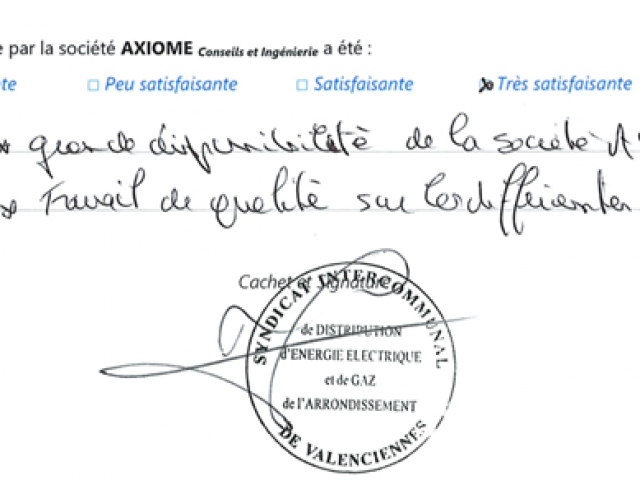 e par la société AXIOME Conseils et Ingénierie a été :
te ☐ Peu satisfaisante ☐ Satisfaisante ☒ Très satisfaisante
* grande disponibilité de la société A
* Travail de qualité sur les différentes
Cachet et Signature
SYNDICAT INTERCOMMUNAL
de DISTRIBUTION
d'ENERGIE ELECTRIQUE
et de GAZ
de l'ARRONDISSEMENT
DE VALENCIENNES